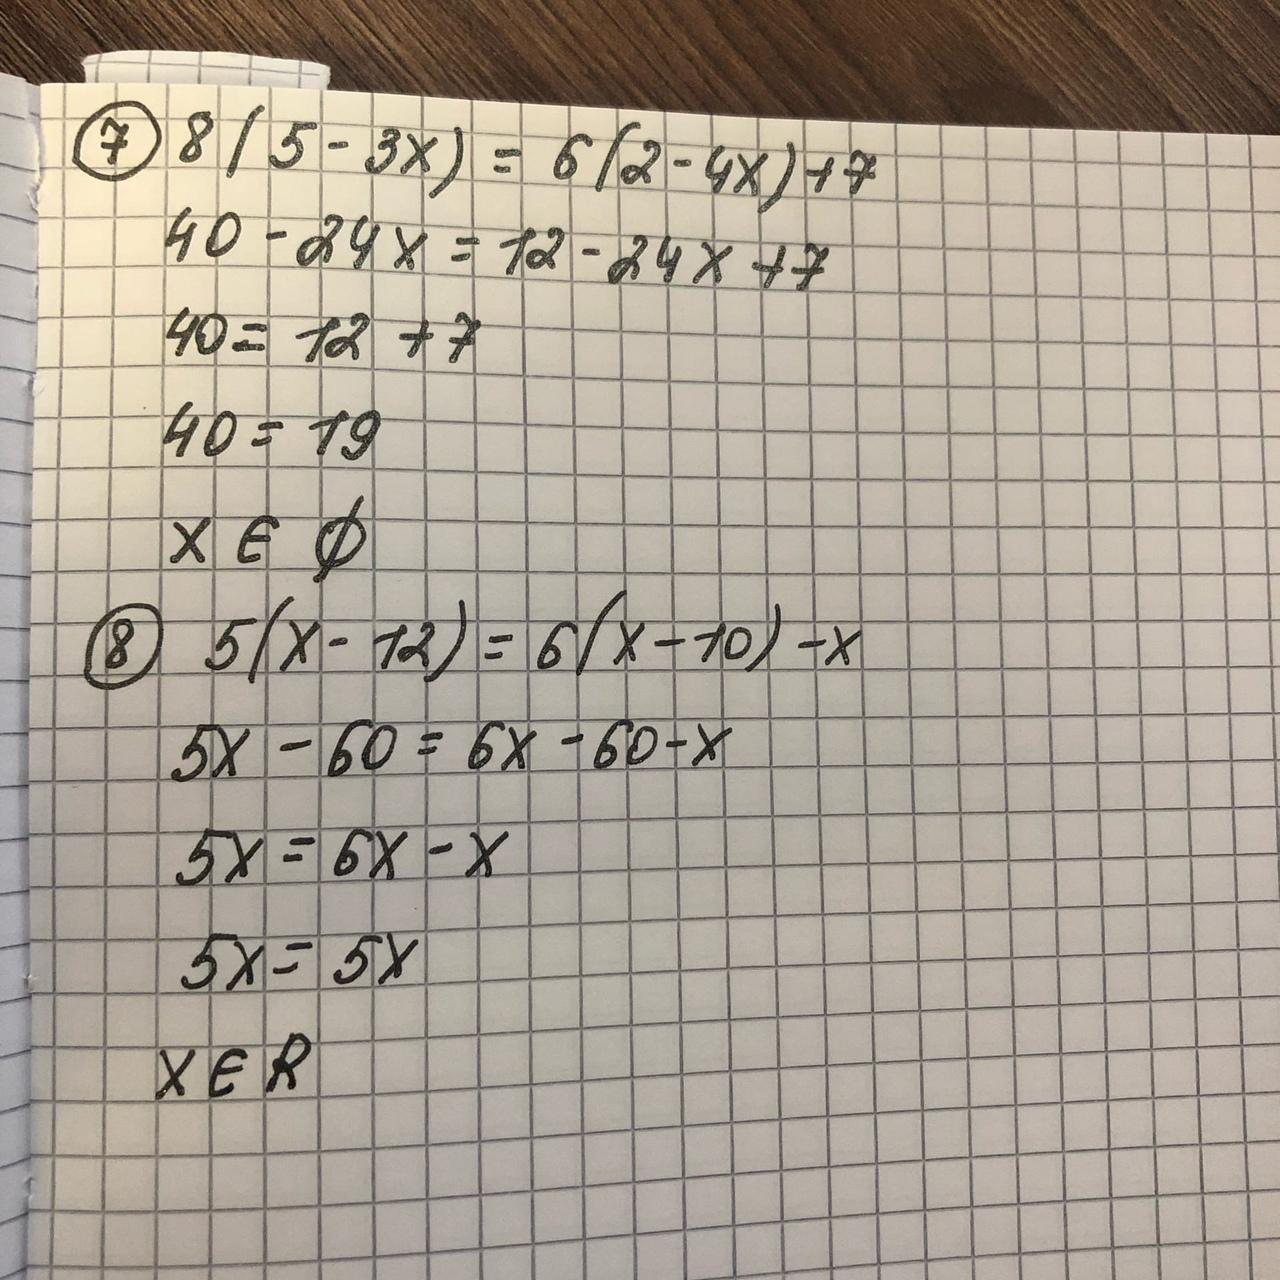 ⑦ 8(5-3x) = 6(2-4x)+7
40 - 24x = 12 - 24x + 7
40 = 12 + 7
40 = 19
x ∈ ∅
⑧ 5(x-12) = 6(x-10)-x
5x - 60 = 6x - 60 - x
5x = 6x - x
5x = 5x
x ∈ R